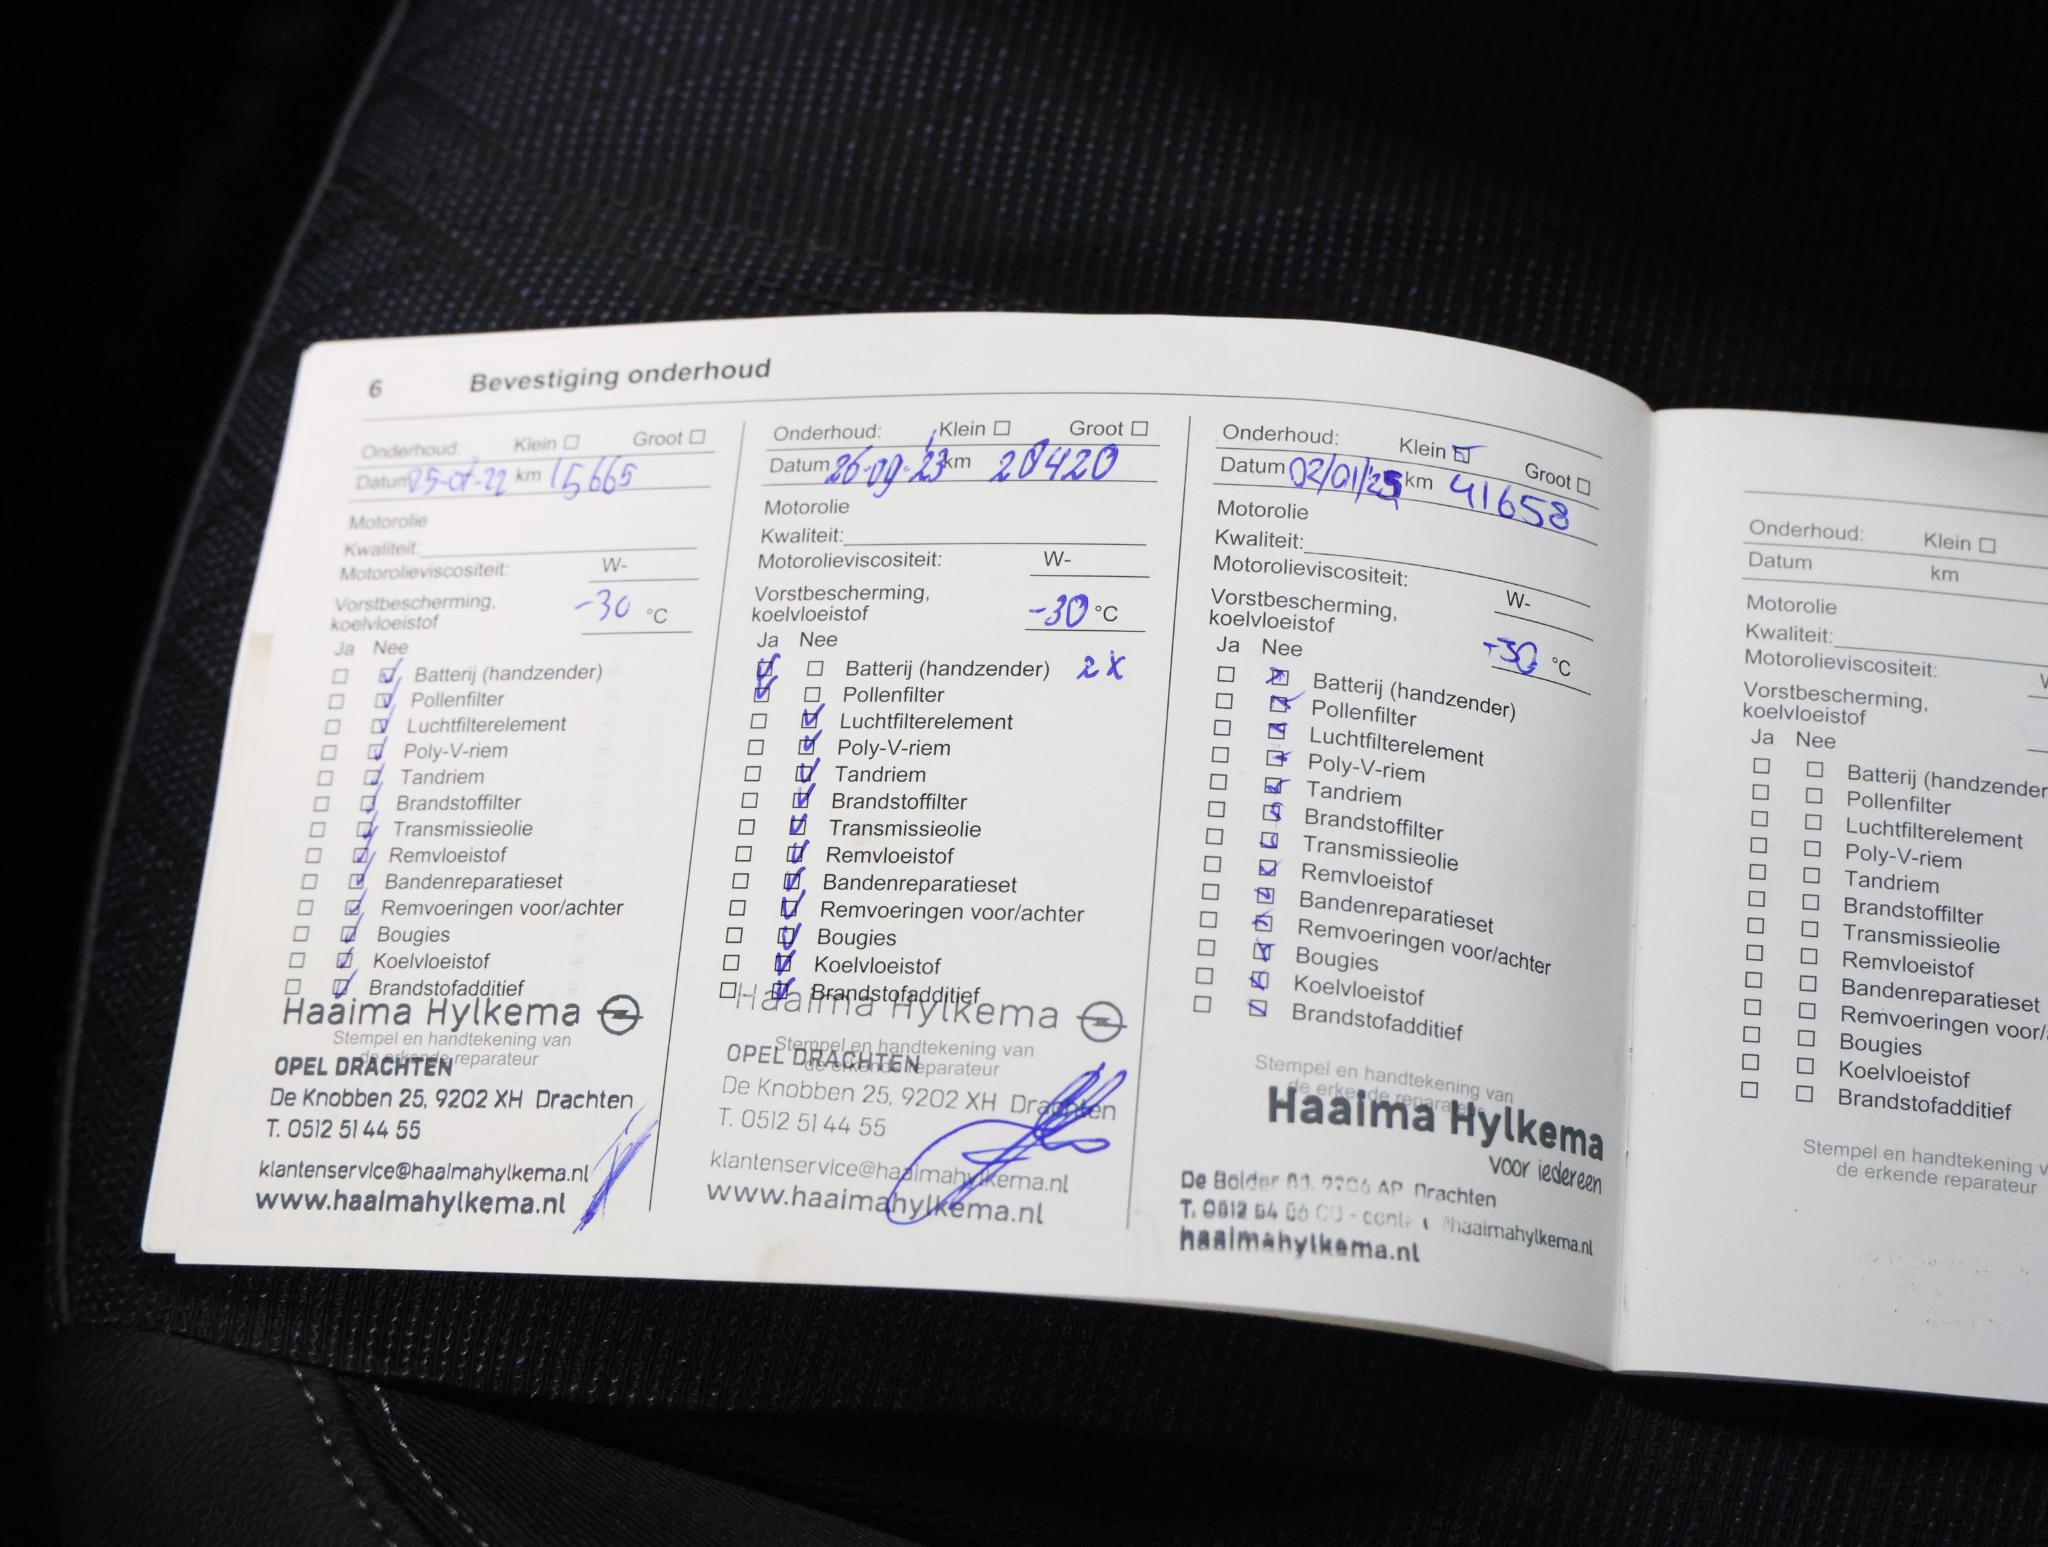 6 Bevestiging onderhoud
Onderhoud: Klein Groot
Datum 25-07-22 km 15665
Motorolie
Kwaliteit:
Motorolieviscositeit: W-
Vorstbescherming,
koelvloeistof -30 °C
Ja Nee
Batterij (handzender)
Pollenfilter
Luchtfilterelement
Poly-V-riem
Tandriem
Brandstoffilter
Transmissieolie
Remvloeistof
Bandenreparatieset
Remvoeringen voor/achter
Bougies
Koelvloeistof
Brandstofadditief
Haaima Hylkema
Stempel en handtekening van
de erkende reparateur
OPEL DRACHTEN
De Knobben 25, 9202 XH Drachten
T. 0512 51 44 55
klantenservice@haaimahylkema.nl
www.haaimahylkema.nl
Onderhoud: Klein Groot
Datum 26-09-23 km 20420
Motorolie
Kwaliteit:
Motorolieviscositeit: W-
Vorstbescherming,
koelvloeistof -30 °C
Ja Nee
Batterij (handzender) 2x
Pollenfilter
Luchtfilterelement
Poly-V-riem
Tandriem
Brandstoffilter
Transmissieolie
Remvloeistof
Bandenreparatieset
Remvoeringen voor/achter
Bougies
Koelvloeistof
Brandstofadditief
Haaima Hylkema
Stempel en handtekening van
de erkende reparateur
OPEL DRACHTEN
De Knobben 25, 9202 XH Drachten
T. 0512 51 44 55
klantenservice@haaimahylkema.nl
www.haaimahylkema.nl
Onderhoud: Klein Groot
Datum 02/01/25 km 41658
Motorolie
Kwaliteit:
Motorolieviscositeit: W-
Vorstbescherming,
koelvloeistof -30 °C
Ja Nee
Batterij (handzender)
Pollenfilter
Luchtfilterelement
Poly-V-riem
Tandriem
Brandstoffilter
Transmissieolie
Remvloeistof
Bandenreparatieset
Remvoeringen voor/achter
Bougies
Koelvloeistof
Brandstofadditief
Stempel en handtekening van
de erkende reparateur
Haaima Hylkema
voor iedereen
De Bolder AP Drachten
T. 0512 haaimahylkema.nl
haaimahylkema.nl
Onderhoud: Klein
Datum km
Motorolie
Kwaliteit:
Motorolieviscositeit:
Vorstbescherming,
koelvloeistof
Ja Nee
Batterij (handzender
Pollenfilter
Luchtfilterelement
Poly-V-riem
Tandriem
Brandstoffilter
Transmissieolie
Remvloeistof
Bandenreparatieset
Remvoeringen voor/
Bougies
Koelvloeistof
Brandstofadditief
Stempel en handtekening v
de erkende reparateur